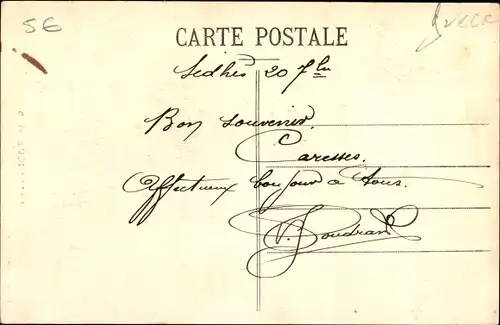 56
CARTE POSTALE
Sedhès 20 7bre
Bon souvenir.
Caresses.
Affectueux bonjour à tous.